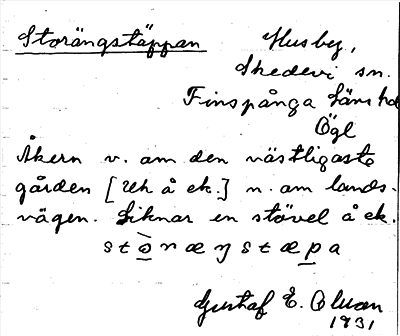 Storängstäppan
Husby,
Skedevi sn.
Finspånga läns hd
Ögl
Åkern v. om den västligaste
gården [Uh å ek.] n. om lands-
vägen. Liknar en stövel å ek.
stòræŋstæpa
Gustaf E. Olsson
1931